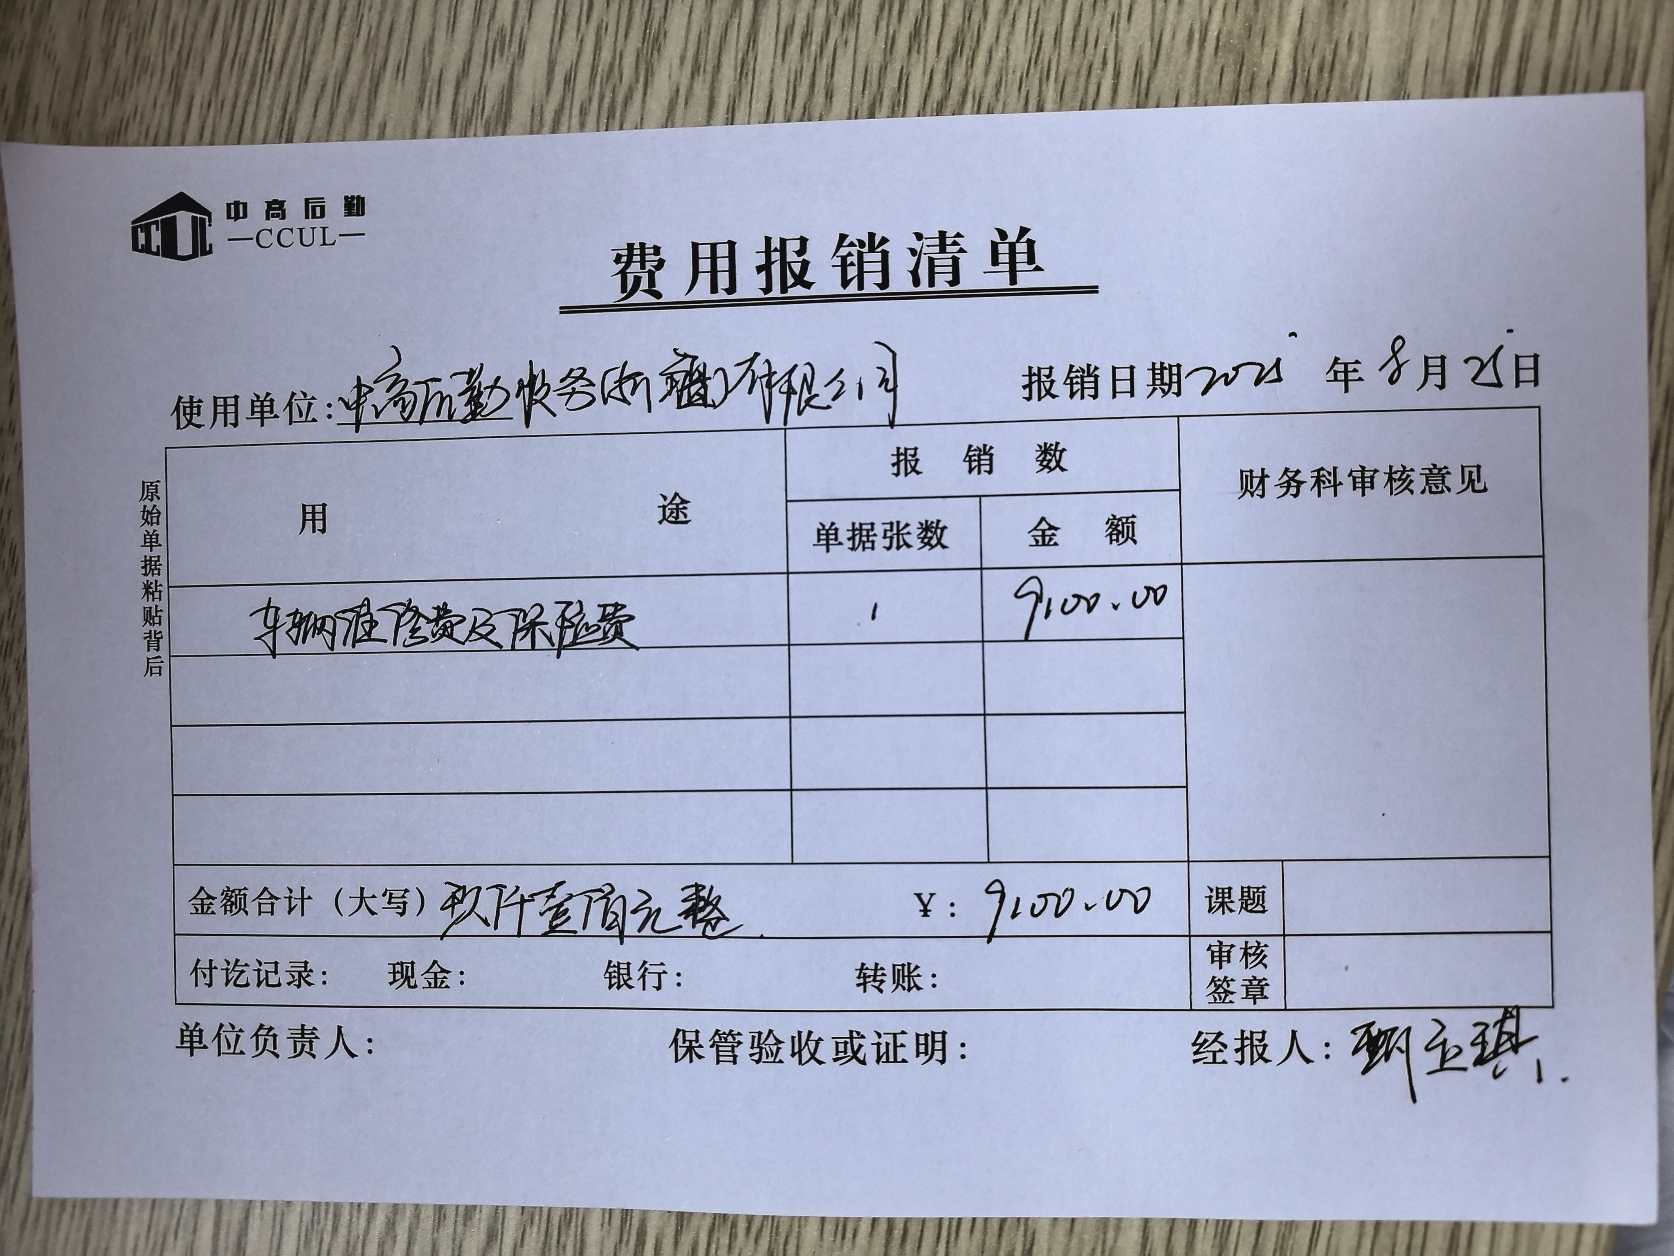 中高后勤
CCUL
—CCUL—
费用报销清单
使用单位:中高后勤服务()有限公司 报销日期2025年8月25日
原始单据粘贴背后
用途 报销数 财务科审核意见
单据张数 金额
车辆 费及保险费 1 9100.00
金额合计（大写）玖仟壹佰元整 ¥: 9100.00 课题
付讫记录: 现金: 银行: 转账: 审核签章
单位负责人: 保管验收或证明: 经报人: